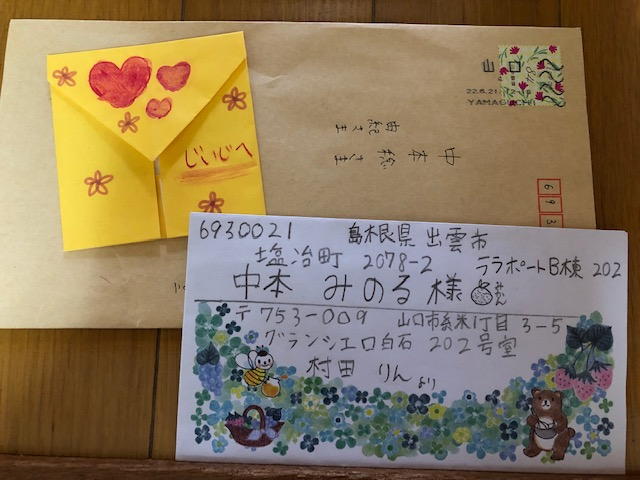 じいじへ
山口
22.6.21
YAMAGUCHI
693
中本 稔さま
由紀さま
6930021 島根県 出雲市
塩冶町 2078-2 ララポートB棟 202
中本 みのる 様
みかん
〒753-009 山口市糸米1丁目 3-5
グランシエロ白石 202号室
村田 りんより